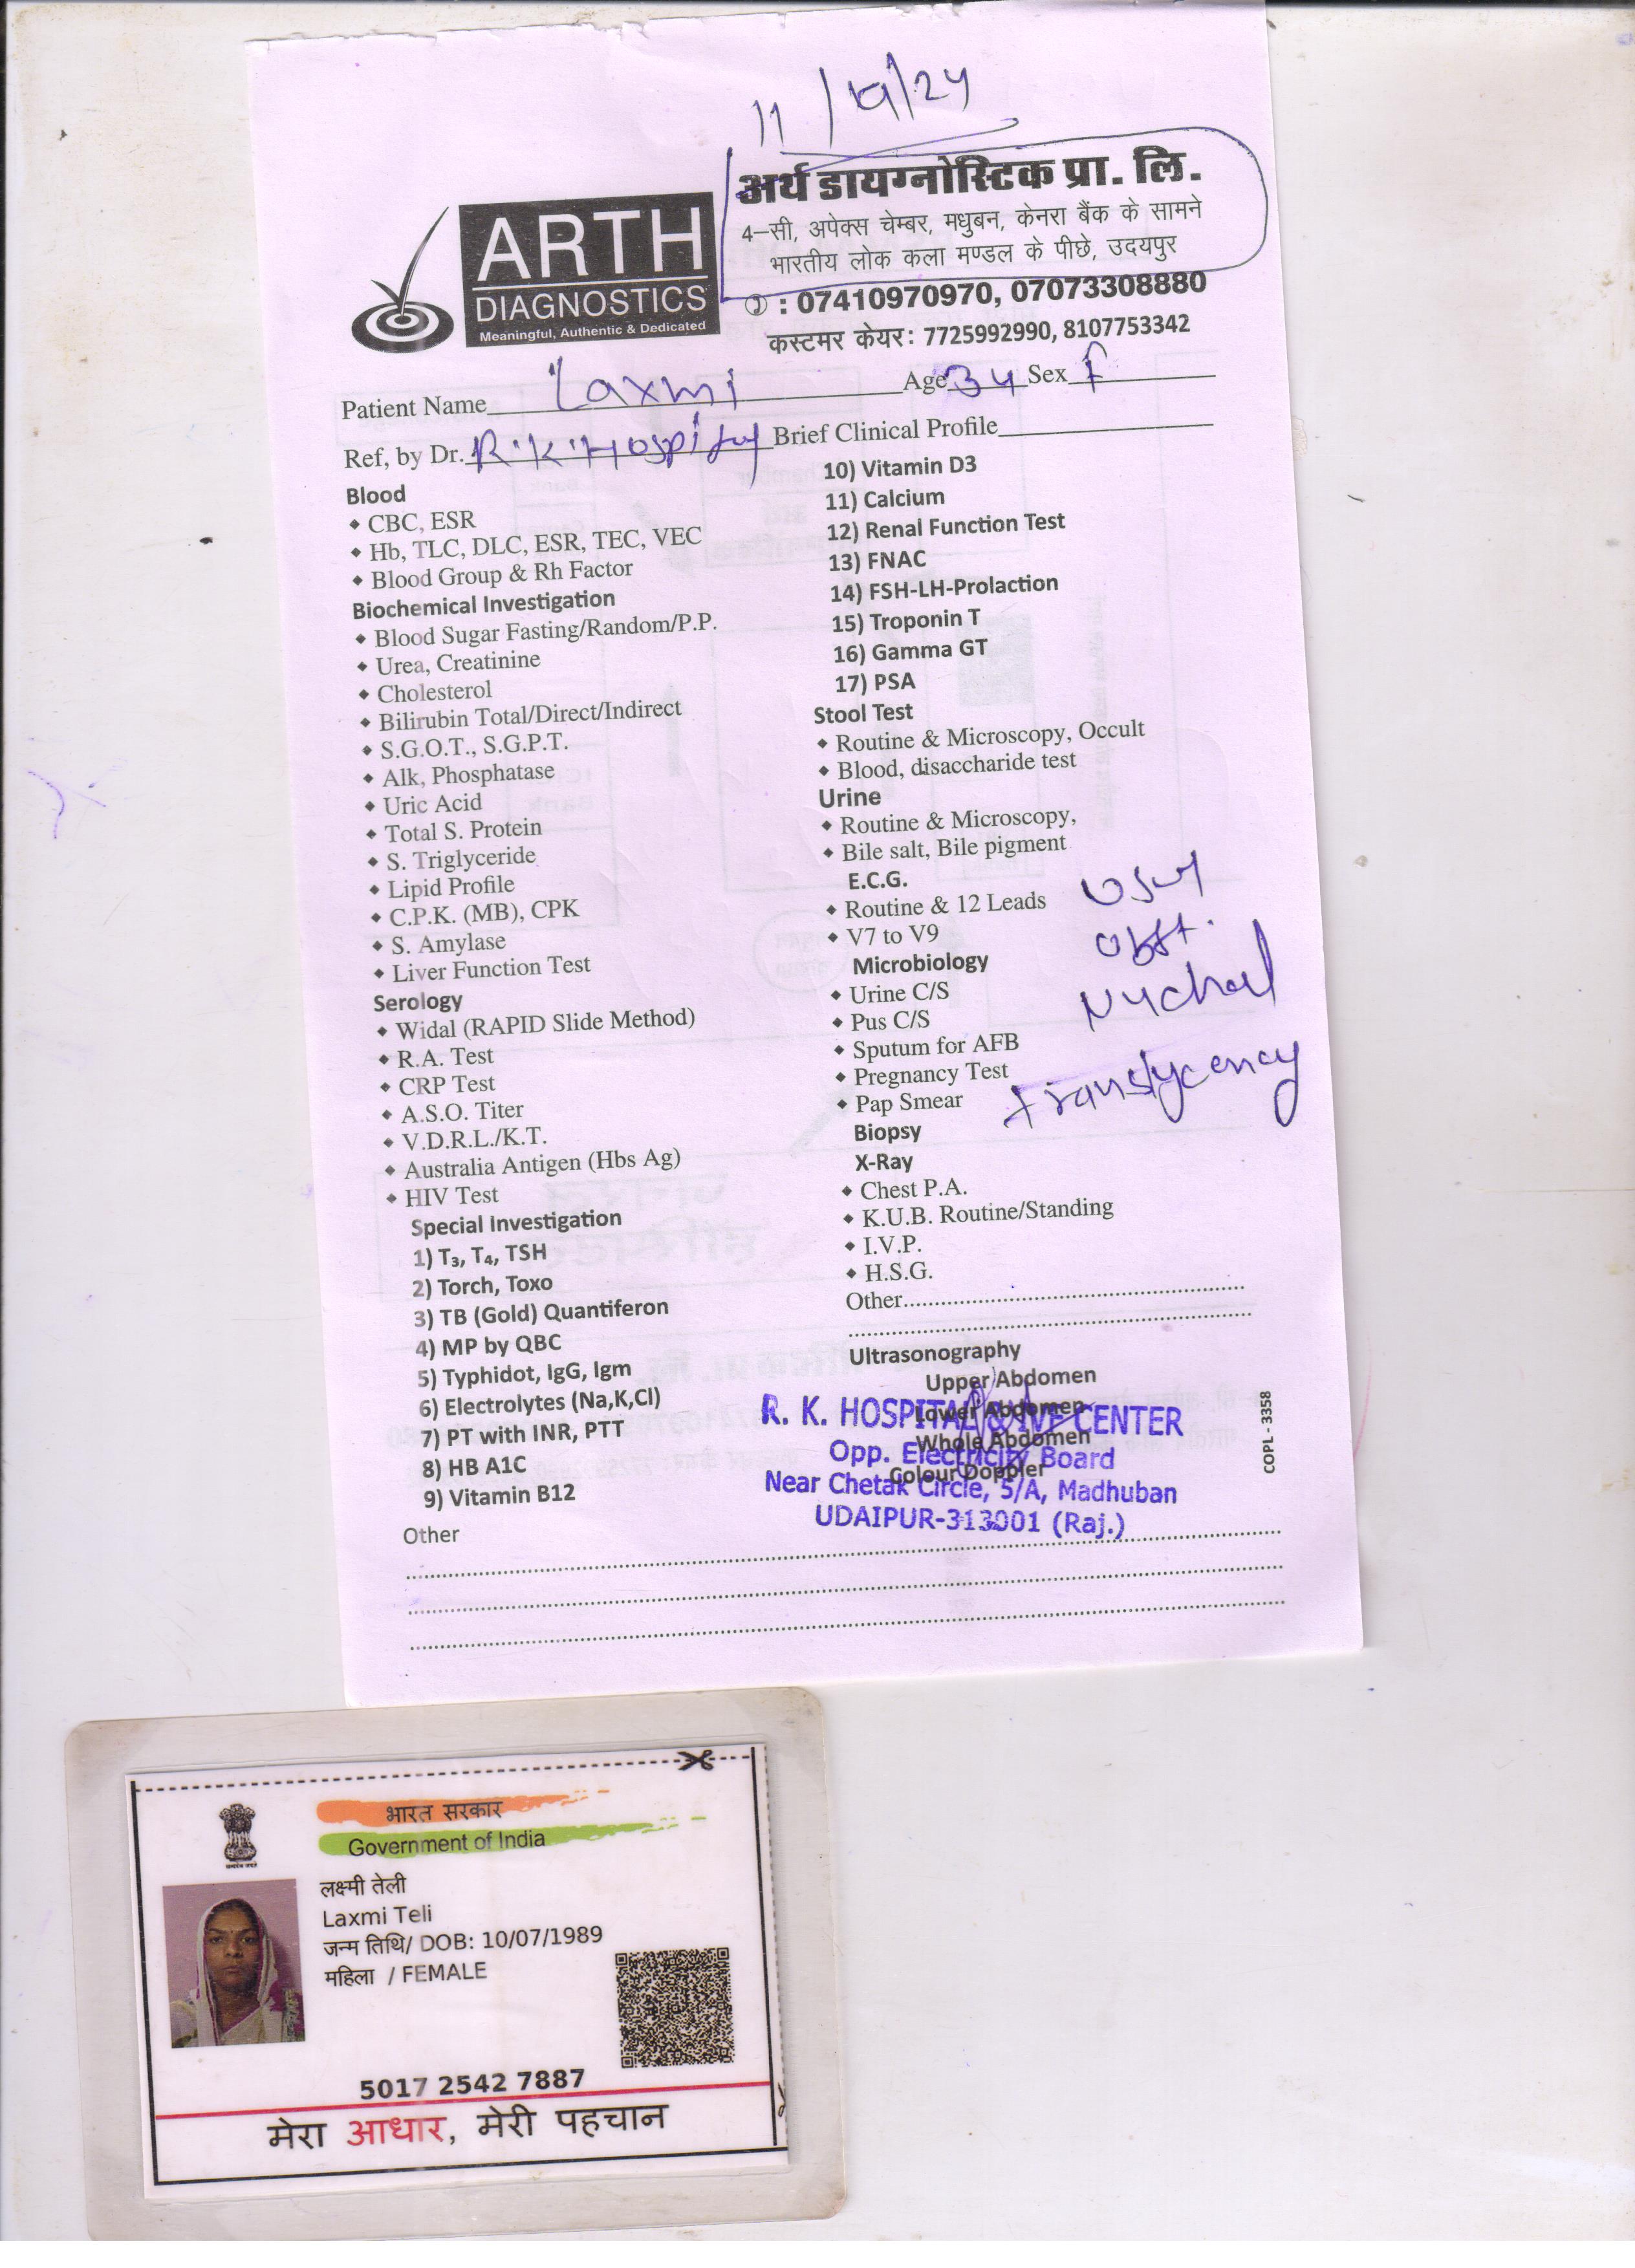 11/19/24
अर्थ डायग्नोस्टिक प्रा. लि.
4–सी, अपेक्स चेम्बर, मधुबन, केनरा बैंक के सामने
भारतीय लोक कला मण्डल के पीछे, उदयपुर
: 07410970970, 07073308880
कस्टमर केयर: 7725992990, 8107753342
ARTH
DIAGNOSTICS
Meaningful, Authentic & Dedicated
Patient Name Laxmi Age 34 Sex f
Ref, by Dr. R.K.Hospital Brief Clinical Profile
Blood
CBC, ESR
Hb, TLC, DLC, ESR, TEC, VEC
Blood Group & Rh Factor
Biochemical Investigation
Blood Sugar Fasting/Random/P.P.
Urea, Creatinine
Cholesterol
Bilirubin Total/Direct/Indirect
S.G.O.T., S.G.P.T.
Alk, Phosphatase
Uric Acid
Total S. Protein
S. Triglyceride
Lipid Profile
C.P.K. (MB), CPK
S. Amylase
Liver Function Test
Serology
Widal (RAPID Slide Method)
R.A. Test
CRP Test
A.S.O. Titer
V.D.R.L./K.T.
Australia Antigen (Hbs Ag)
HIV Test
Special Investigation
1) T₃, T₄, TSH
2) Torch, Toxo
3) TB (Gold) Quantiferon
4) MP by QBC
5) Typhidot, IgG, Igm
6) Electrolytes (Na,K,Cl)
7) PT with INR, PTT
8) HB A1C
9) Vitamin B12
Other
10) Vitamin D3
11) Calcium
12) Renal Function Test
13) FNAC
14) FSH-LH-Prolaction
15) Troponin T
16) Gamma GT
17) PSA
Stool Test
Routine & Microscopy, Occult
Blood, disaccharide test
Urine
Routine & Microscopy,
Bile salt, Bile pigment
E.C.G.
Routine & 12 Leads
V7 to V9
Microbiology
Urine C/S
Pus C/S
Sputum for AFB
Pregnancy Test
Pap Smear
Biopsy
X-Ray
Chest P.A.
K.U.B. Routine/Standing
I.V.P.
H.S.G.
Other
obst.
Nuchal
translucency
Ultrasonography
Upper Abdomen
Lower Abdomen
Whole Abdomen
Colour Doppler
R. K. HOSPITAL & IVF CENTER
Opp. Electricity Board
Near Chetak Circle, 5/A, Madhuban
UDAIPUR-313001 (Raj.)
COPL - 3358
भारत सरकार
Government of India
लक्ष्मी तेली
Laxmi Teli
जन्म तिथि/ DOB: 10/07/1989
महिला / FEMALE
5017 2542 7887
मेरा आधार, मेरी पहचान